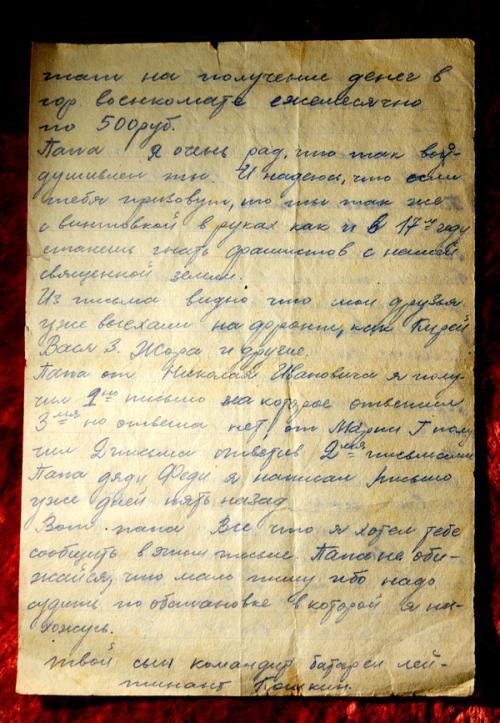 тат на получение денег в
гор. военкомате ежемесячно
по 500руб.
Папа я очень рад, что так
ты. И надеюсь, что если
тебя призовут, то ты так же
с винтовкой в руках как и в 17м году
станешь гнать фашистов с нашей
священной земли.
Из письма видно что мои друзья
уже выехали на фронт, как
Вася З. Жора и другие.
Папа от Николая Ивановича я полу-
чил 2но письмо на которое ответил
3мя но ответа нет, от Марии Г полу-
чил 2 письма ответив 2мя письмами
Папа дяде Феде я написал письмо
уже дней пять назад
Вот папа Все что я хотел тебе
сообщить в этом письме. Папа не оби-
жайся, что мало пишу ибо надо
судить по обстановке в которой я на-
хожусь.
твой сын командир батареи лей-
тинант